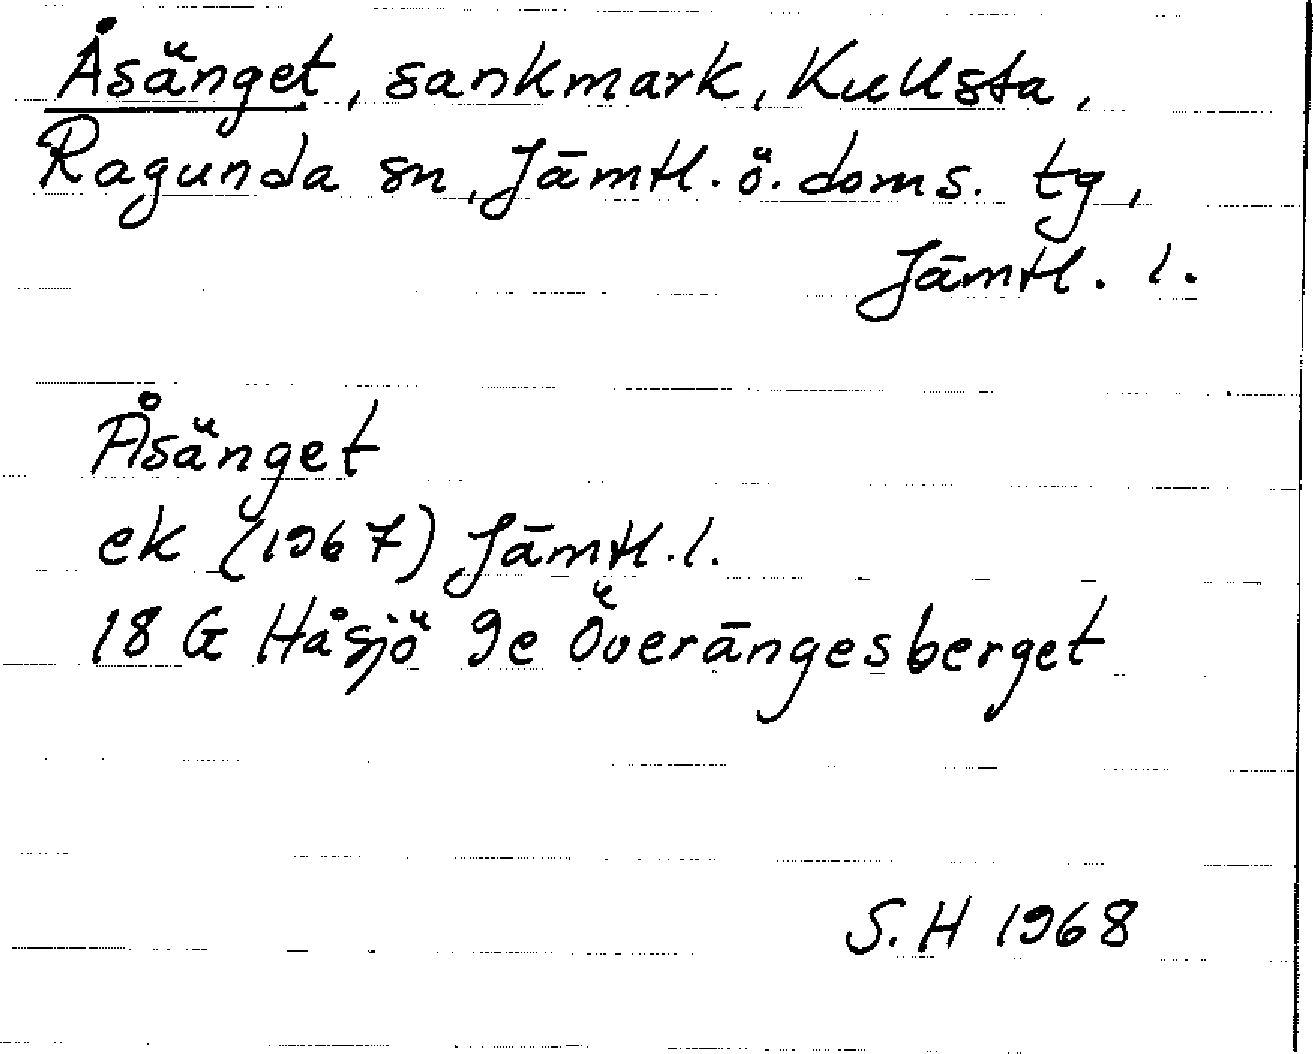 Åsänget, sankmark, Kullsta,
Ragunda sn, Jämtl. ö. doms. tg,
Jämtl. l.
Åsänget
ek (1967) Jämtl. l.
18 G Håsjö 9e Överängesberget
S. H 1968